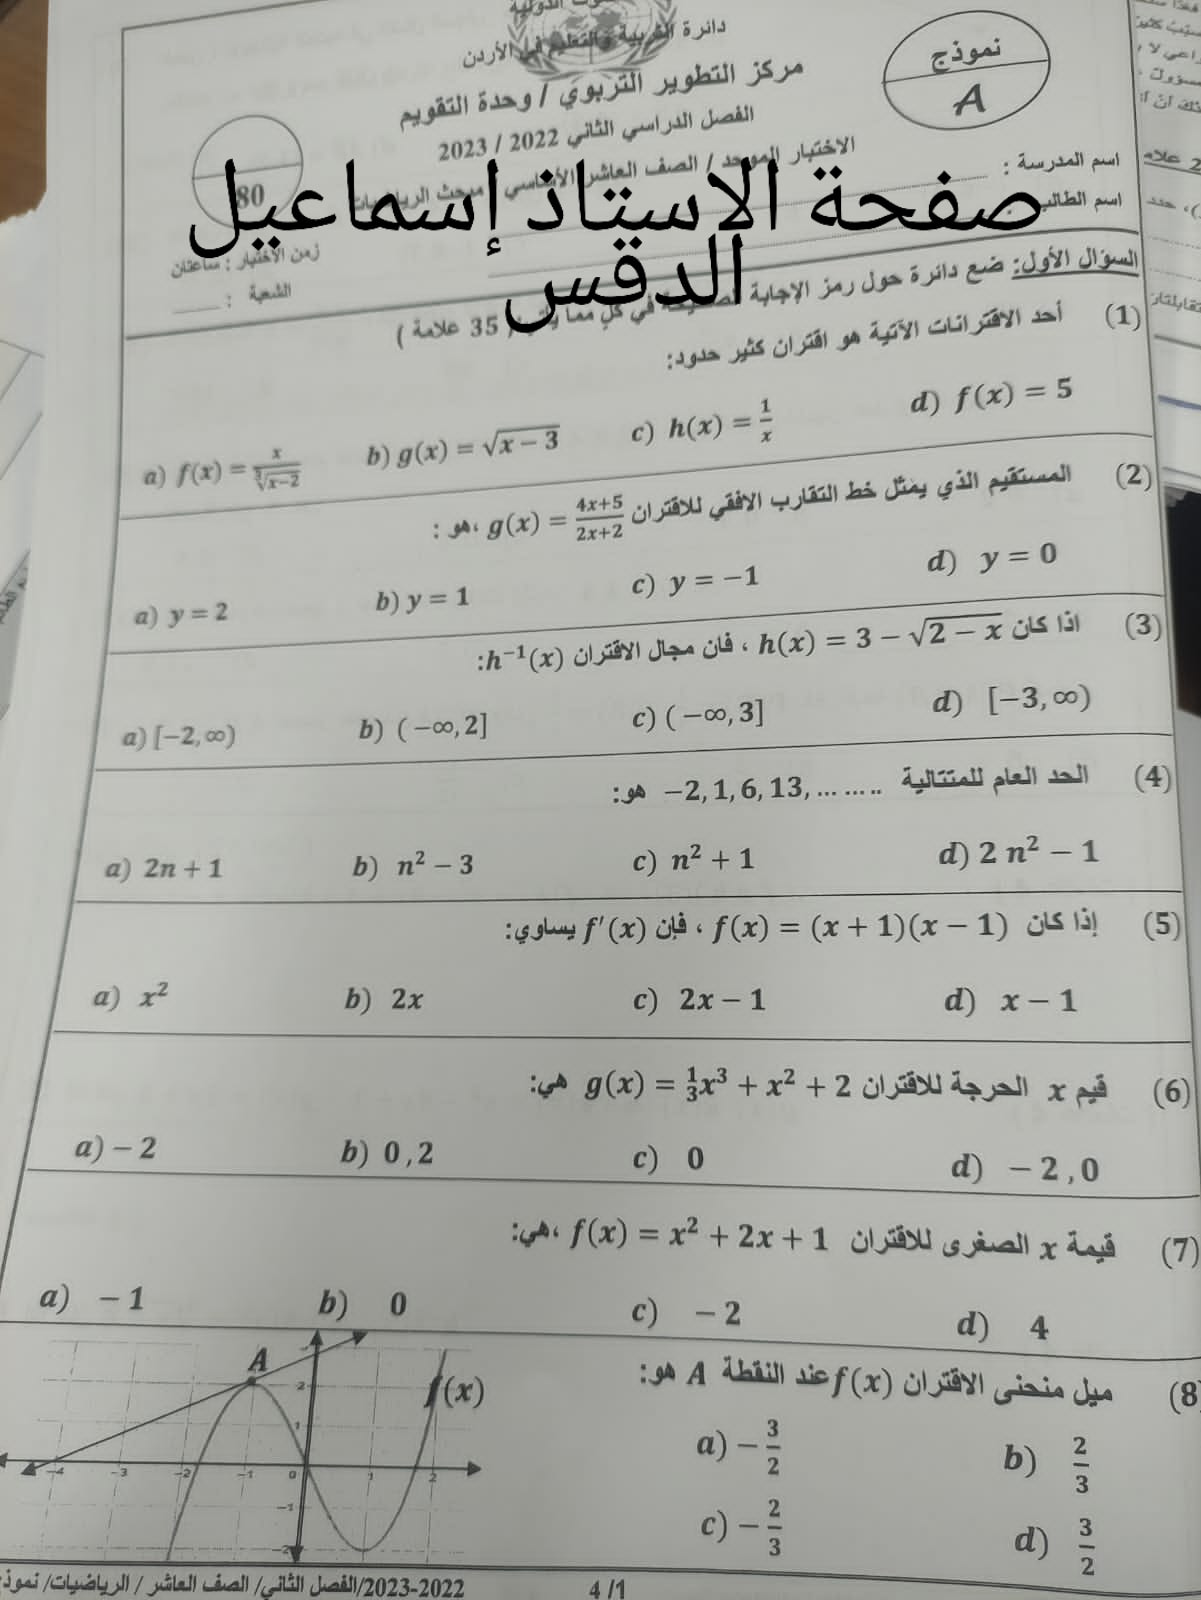 دائرة التربية والتعليم في الأردن
مركز التطوير التربوي / وحدة التقويم
الفصل الدراسي الثاني 2022 / 2023
الاختبار الموحد / الصف العاشر الأساسي / مبحث الرياضيات
نموذج
A
80
صفحة الاستاذ إسماعيل
الدقس
اسم المدرسة :
اسم الطالب
زمن الاختبار : ساعتان
الشعبة :
السؤال الأول: ضع دائرة حول رمز الإجابة الصحيحة في كلٍ مما يأتي ( 35 علامة )
(1) أحد الاقترانات الآتية هو اقتران كثير حدود:
a) f(x) = x/∛(x−2) b) g(x) = √(x − 3) c) h(x) = 1/x d) f(x) = 5
(2) المستقيم الذي يمثل خط التقارب الافقي للاقتران g(x) = (4x+5)/(2x+2) ،هو :
a) y = 2 b) y = 1 c) y = −1 d) y = 0
(3) اذا كان h(x) = 3 − √(2 − x) ، فان مجال الاقتران h⁻¹(x):
a) [−2, ∞) b) (−∞, 2] c) (−∞, 3] d) [−3, ∞)
(4) الحد العام للمتتالية −2, 1, 6, 13, … … .. هو:
a) 2n + 1 b) n² − 3 c) n² + 1 d) 2 n² − 1
(5) إذا كان f(x) = (x + 1)(x − 1) ، فإن f′(x) يساوي:
a) x² b) 2x c) 2x − 1 d) x − 1
(6) قيم x الحرجة للاقتران g(x) = ⅓x³ + x² + 2 هي:
a) − 2 b) 0 , 2 c) 0 d) − 2 , 0
(7) قيمة x الصغرى للاقتران f(x) = x² + 2x + 1 ،هي:
a) − 1 b) 0 c) − 2 d) 4
(8) ميل منحنى الاقتران f(x) عند النقطة A هو:
a) − 3/2 b) 2/3
c) − 2/3 d) 3/2
A
f(x)
2
1
−4 −3 −2 −1 0 1 2
−1
−2
2022-2023/الفصل الثاني/ الصف العاشر / الرياضيات/ نموذج
4 /1